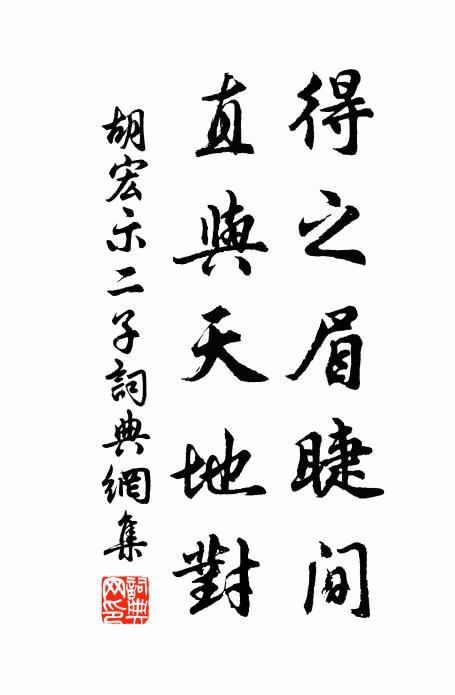 得之眉睫间
直與天地對
胡宏示二子詞典網集
詞典網印